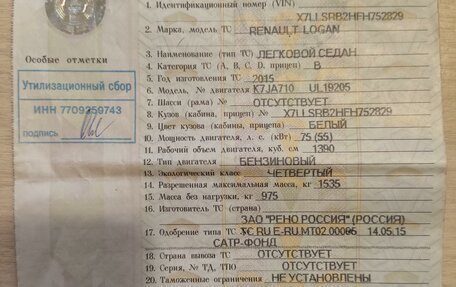 1. Идентификационный номер (VIN)
X7LLSRB2HFH752829
2. Марка, модель ТС RENAULT LOGAN
3. Наименование (тип ТС) ЛЕГКОВОЙ СЕДАН
4. Категория ТС (A, B, C, D, прицеп) B
5. Год изготовления ТС 2015
6. Модель, № двигателя K7JA710 UL19205
7. Шасси (рама) № ОТСУТСТВУЕТ
8. Кузов (кабина, прицеп) № X7LLSRB2HFH752829
9. Цвет кузова (кабины, прицепа) БЕЛЫЙ
10. Мощность двигателя, л. с. (кВт) 75 (55)
11. Рабочий объем двигателя, куб. см 1390
12. Тип двигателя БЕНЗИНОВЫЙ
13. Экологический класс ЧЕТВЕРТЫЙ
14. Разрешенная максимальная масса, кг 1535
15. Масса без нагрузки, кг 975
16. Изготовитель ТС (страна)
ЗАО "РЕНО РОССИЯ" (РОССИЯ)
17. Одобрение типа ТС № ТС RU E-RU.MT02.00065 14.05.15
САТР-ФОНД
18. Страна вывоза ТС ОТСУТСТВУЕТ
19. Серия, № ТД, ТПО ОТСУТСТВУЕТ
20. Таможенные ограничения НЕ УСТАНОВЛЕНЫ
Особые отметки
Утилизационный сбор
ИНН 7709259743
подпись